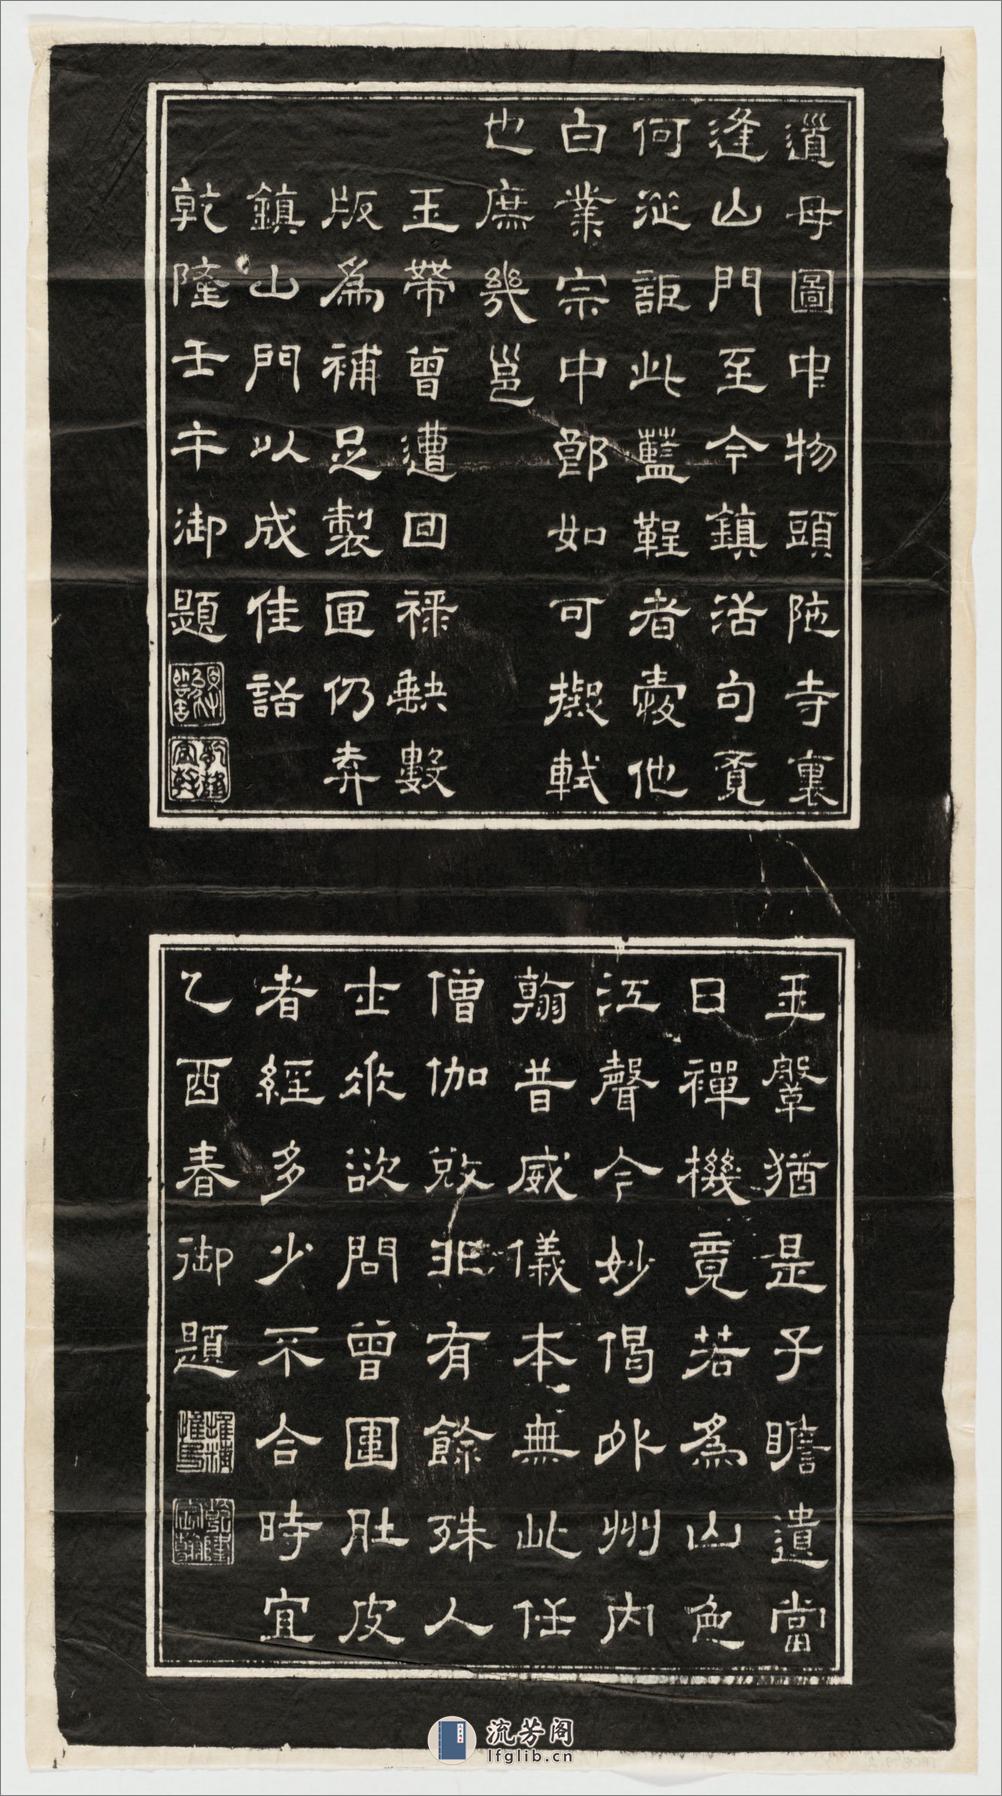 道母圖中物頭陁寺裏
逢山門至今鎮活句覔
何從詎此藍鞓者疲他
白業宗中郎如可擬軾
也庶幾邕
玉帶曾遭回祿缺數
版為補足製匣仍弆
鎮山門以成佳話
乾隆壬午御題
玉鞶猶是子瞻遺當
日禪機竟若為山色
江聲今妙偈外州內
翰昔威儀本無此任
僧伽敚非有餘殊人
士炊欲問曾圍肚皮
者經多少不合時宜
乙酉春御題
流芳阁
lfglib.cn